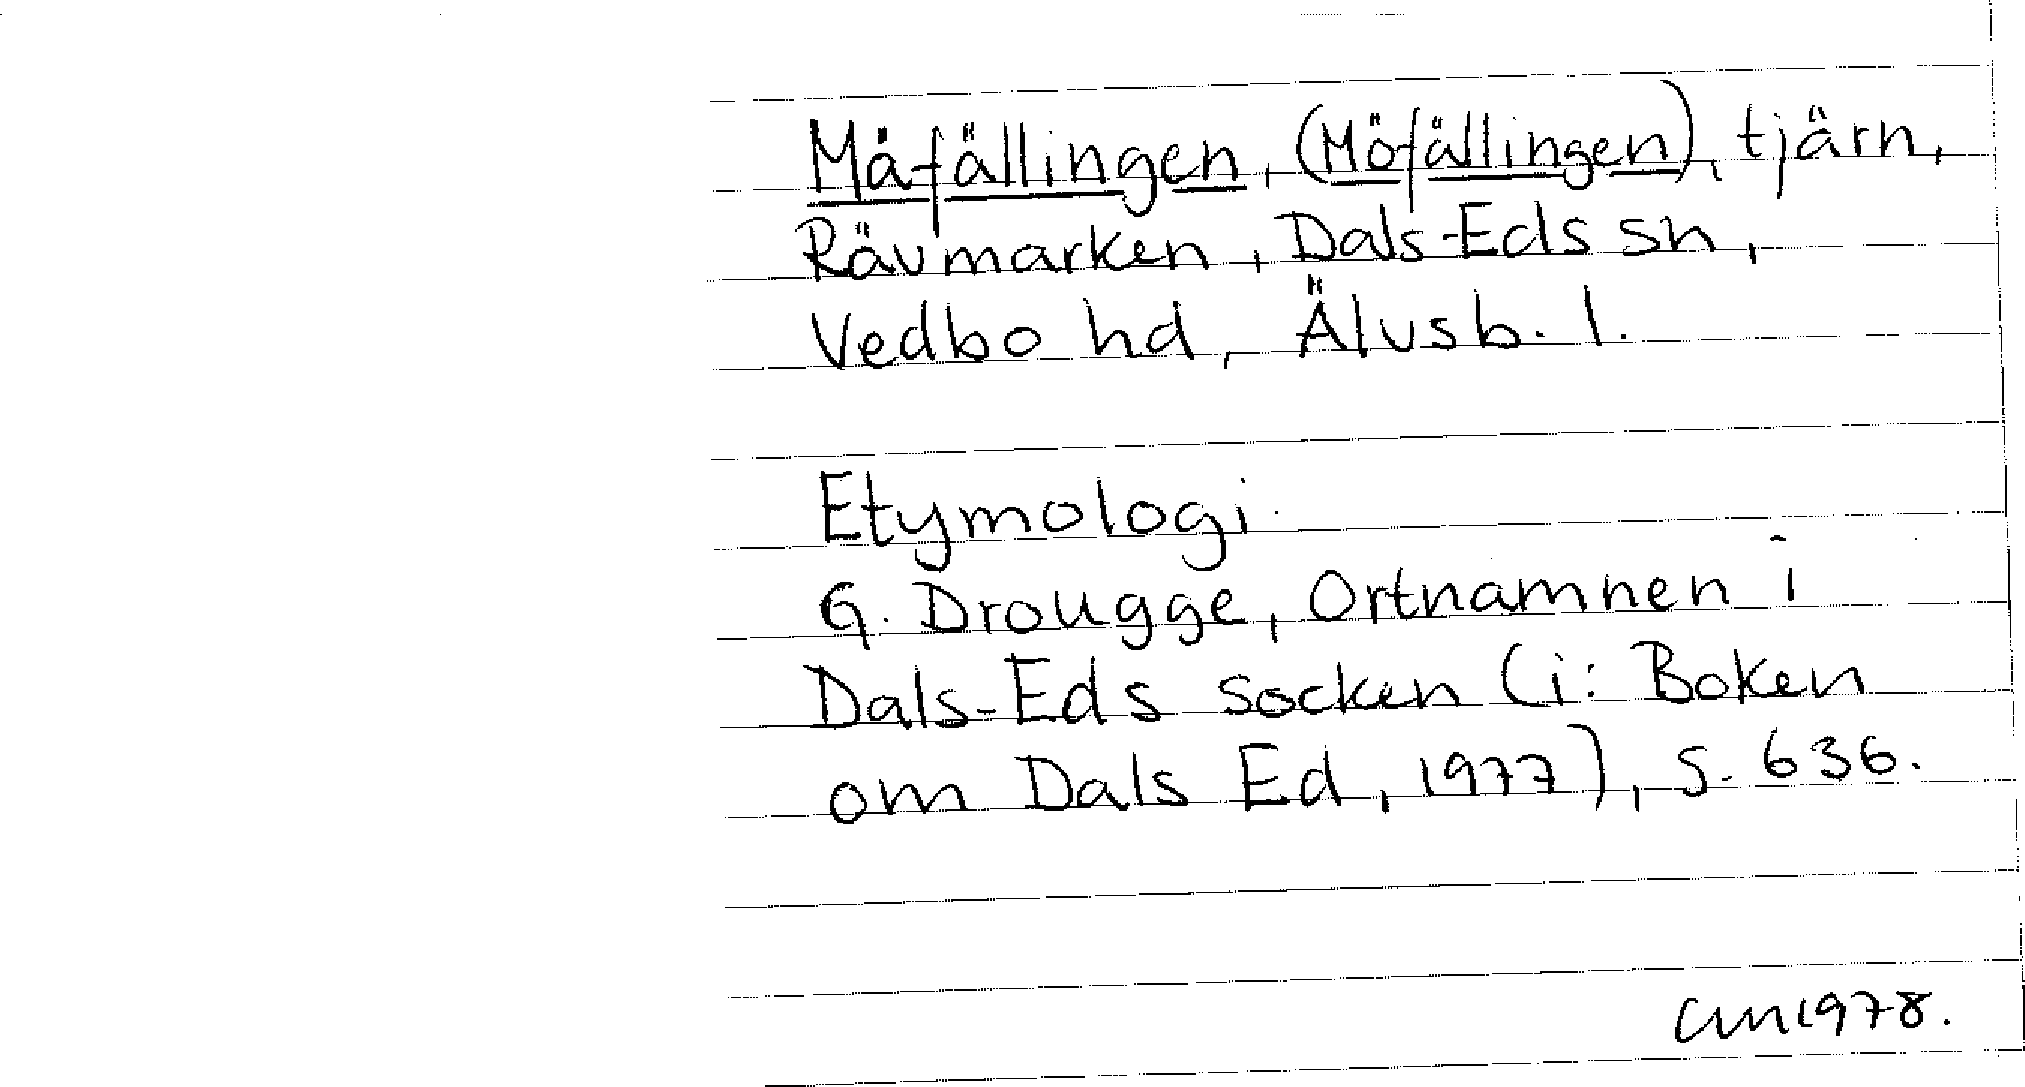 Måfällingen, (Möfällingen), tjärn,
Rävmarken, Dals-Eds sn,
Vedbo hd, Älvsb. l.
Etymologi
G. Drougge, Ortnamnen i
Dals-Eds socken (i: Boken
om Dals Ed, 1977), s. 636.
CM 1978.